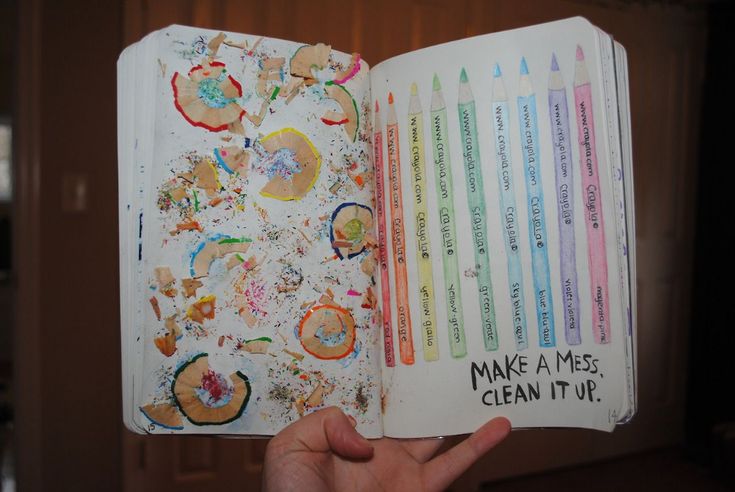 www.crayola.com Crayola® orange
www.crayola.com Crayola® yellow-giallo
www.crayola.com Crayola® yellow-green
www.crayola.com Crayola® green-verde
www.crayola.com Crayola® sky blue
www.crayola.com Crayola® blue
www.crayola.com Crayola® violet-violeta
www.crayola.com Crayola® magenta
MAKE A MESS.
CLEAN IT UP.
15
14